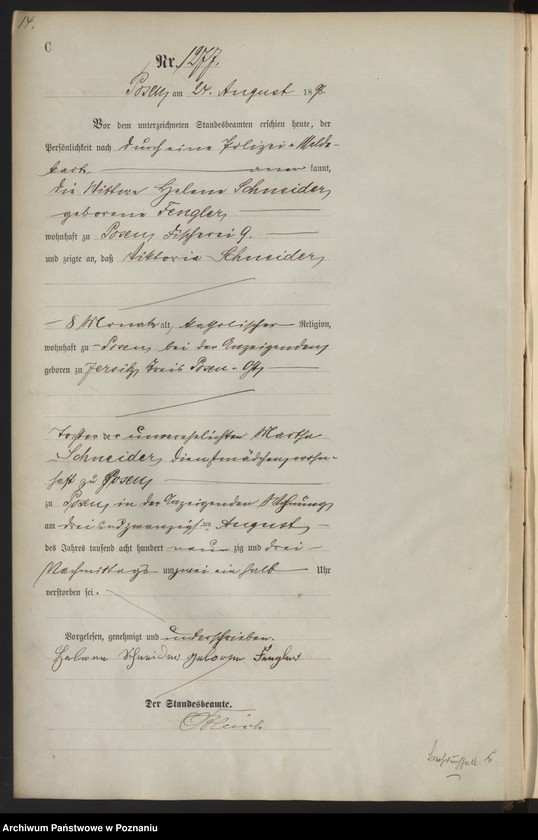 14.
C
Nr. 1277.
Posen, am 24. August 189
Vor dem unterzeichneten Standesbeamten erschien heute, der
Persönlichkeit nach durch eine Polizei-Melde-
karte kannt,
die Wittwe Helene Schneider,
geborene Fengler,
wohnhaft zu Posen, Fischerei 9.
und zeigte an, daß Viktoria Schneider,
8 Monate alt, katholischer Religion,
wohnhaft zu Posen, bei der Anzeigenden,
geboren zu Jersitz, Kreis Posen-Ost,
Tochter der unverehelichten Martha
Schneider, Dienstmädchen, wohn-
haft zu Posen,
zu Posen, in der Anzeigenden Wohnung,
am drei und zwanzigsten August
des Jahres tausend acht hundert neun zig und drei
Nachmittags um zwei ein halb Uhr
verstorben sei.
Vorgelesen, genehmigt und unterschrieben.
Helene Schneider geborene Fengler
Der Standesbeamte.
Archiwum Państwowe w Poznaniu